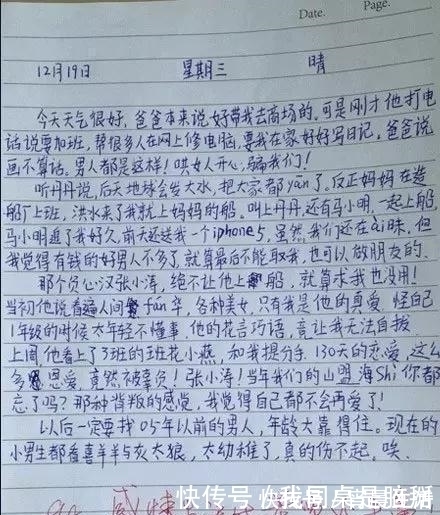 Date.
Page.
12月19日 星期三 晴
今天天气很好,爸爸本来说好带我去商场的,可是刚才他打电
话说要加班,帮很多人在网上修电脑,要我在家好好写日记,爸爸说
画不算话。男人都是这样!哄女人开心,骗我们!
听丹丹说,后天地球会发大水,把大家都yān了。反正妈妈在造
船厂上班,洪水来了我就上妈妈的船。叫上丹丹,还有马小明,一起上船,
马小明追了我好久,前天还送我一个iphone5,虽然我们还在ai昧,但
我觉得有钱的好男人不多了,就算最后不能取我,也可以做朋友的.
那个负心汉张小涛,绝不让他上船,就算求我也没用!
当初他说看遍人间fán华,各种美女,只有我是他的真爱,怪自己
1年级的时候太年轻不懂事,他的花言巧语,竟让我无法自拔
上周,他看上了3班的班花小燕,和我提分手,130天的恋爱,这么
多恩爱,竟然被辜负!张小涛!当年我们的山盟海Shi你都
忘了吗?那种背叛的感觉,我觉得自己都不会再爱了!
以后一定要找05年以前的男人,年龄大靠得住。现在的
小男生都看喜羊羊与灰太狼,太幼稚了,真的伤不起,唉、
快传号